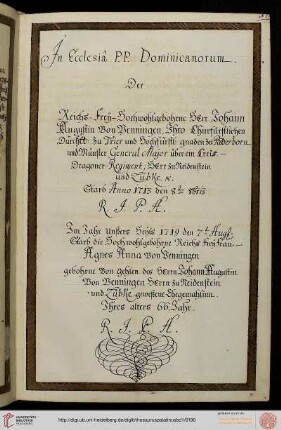 In Ecclesia P.P. Dominicanorum.
Der
Reichs-Frey-Hochwohlgebohrne Herr Johann
Augustin Von Venningen, Ihro Churfürstlichen
zu Trier und Hochfürstl: gnaden zu Paderborn
und Münster General Major über ein Creis
Dragoner-Regiment, Herr zu Reidenstein
und
Starb Anno 1713 den 8ten
R. I. P. A.
Im Jahr Unsers 1719 den 7t Augst.
Starb die Hochwohlgebohrne Reichs frey frau
Agnes Anna Von Venningen
gebohrne Von Gehlen des Herrn Johann Augustin
Von Venningen Herrn zu Reidenstein
und gewesene Ehegemahlin.
Ihres alters 66 Jahr.
R. I. P. A.
http://digi.ub.uni-heidelberg.de/diglit/thesauruspalathusbd1/0100